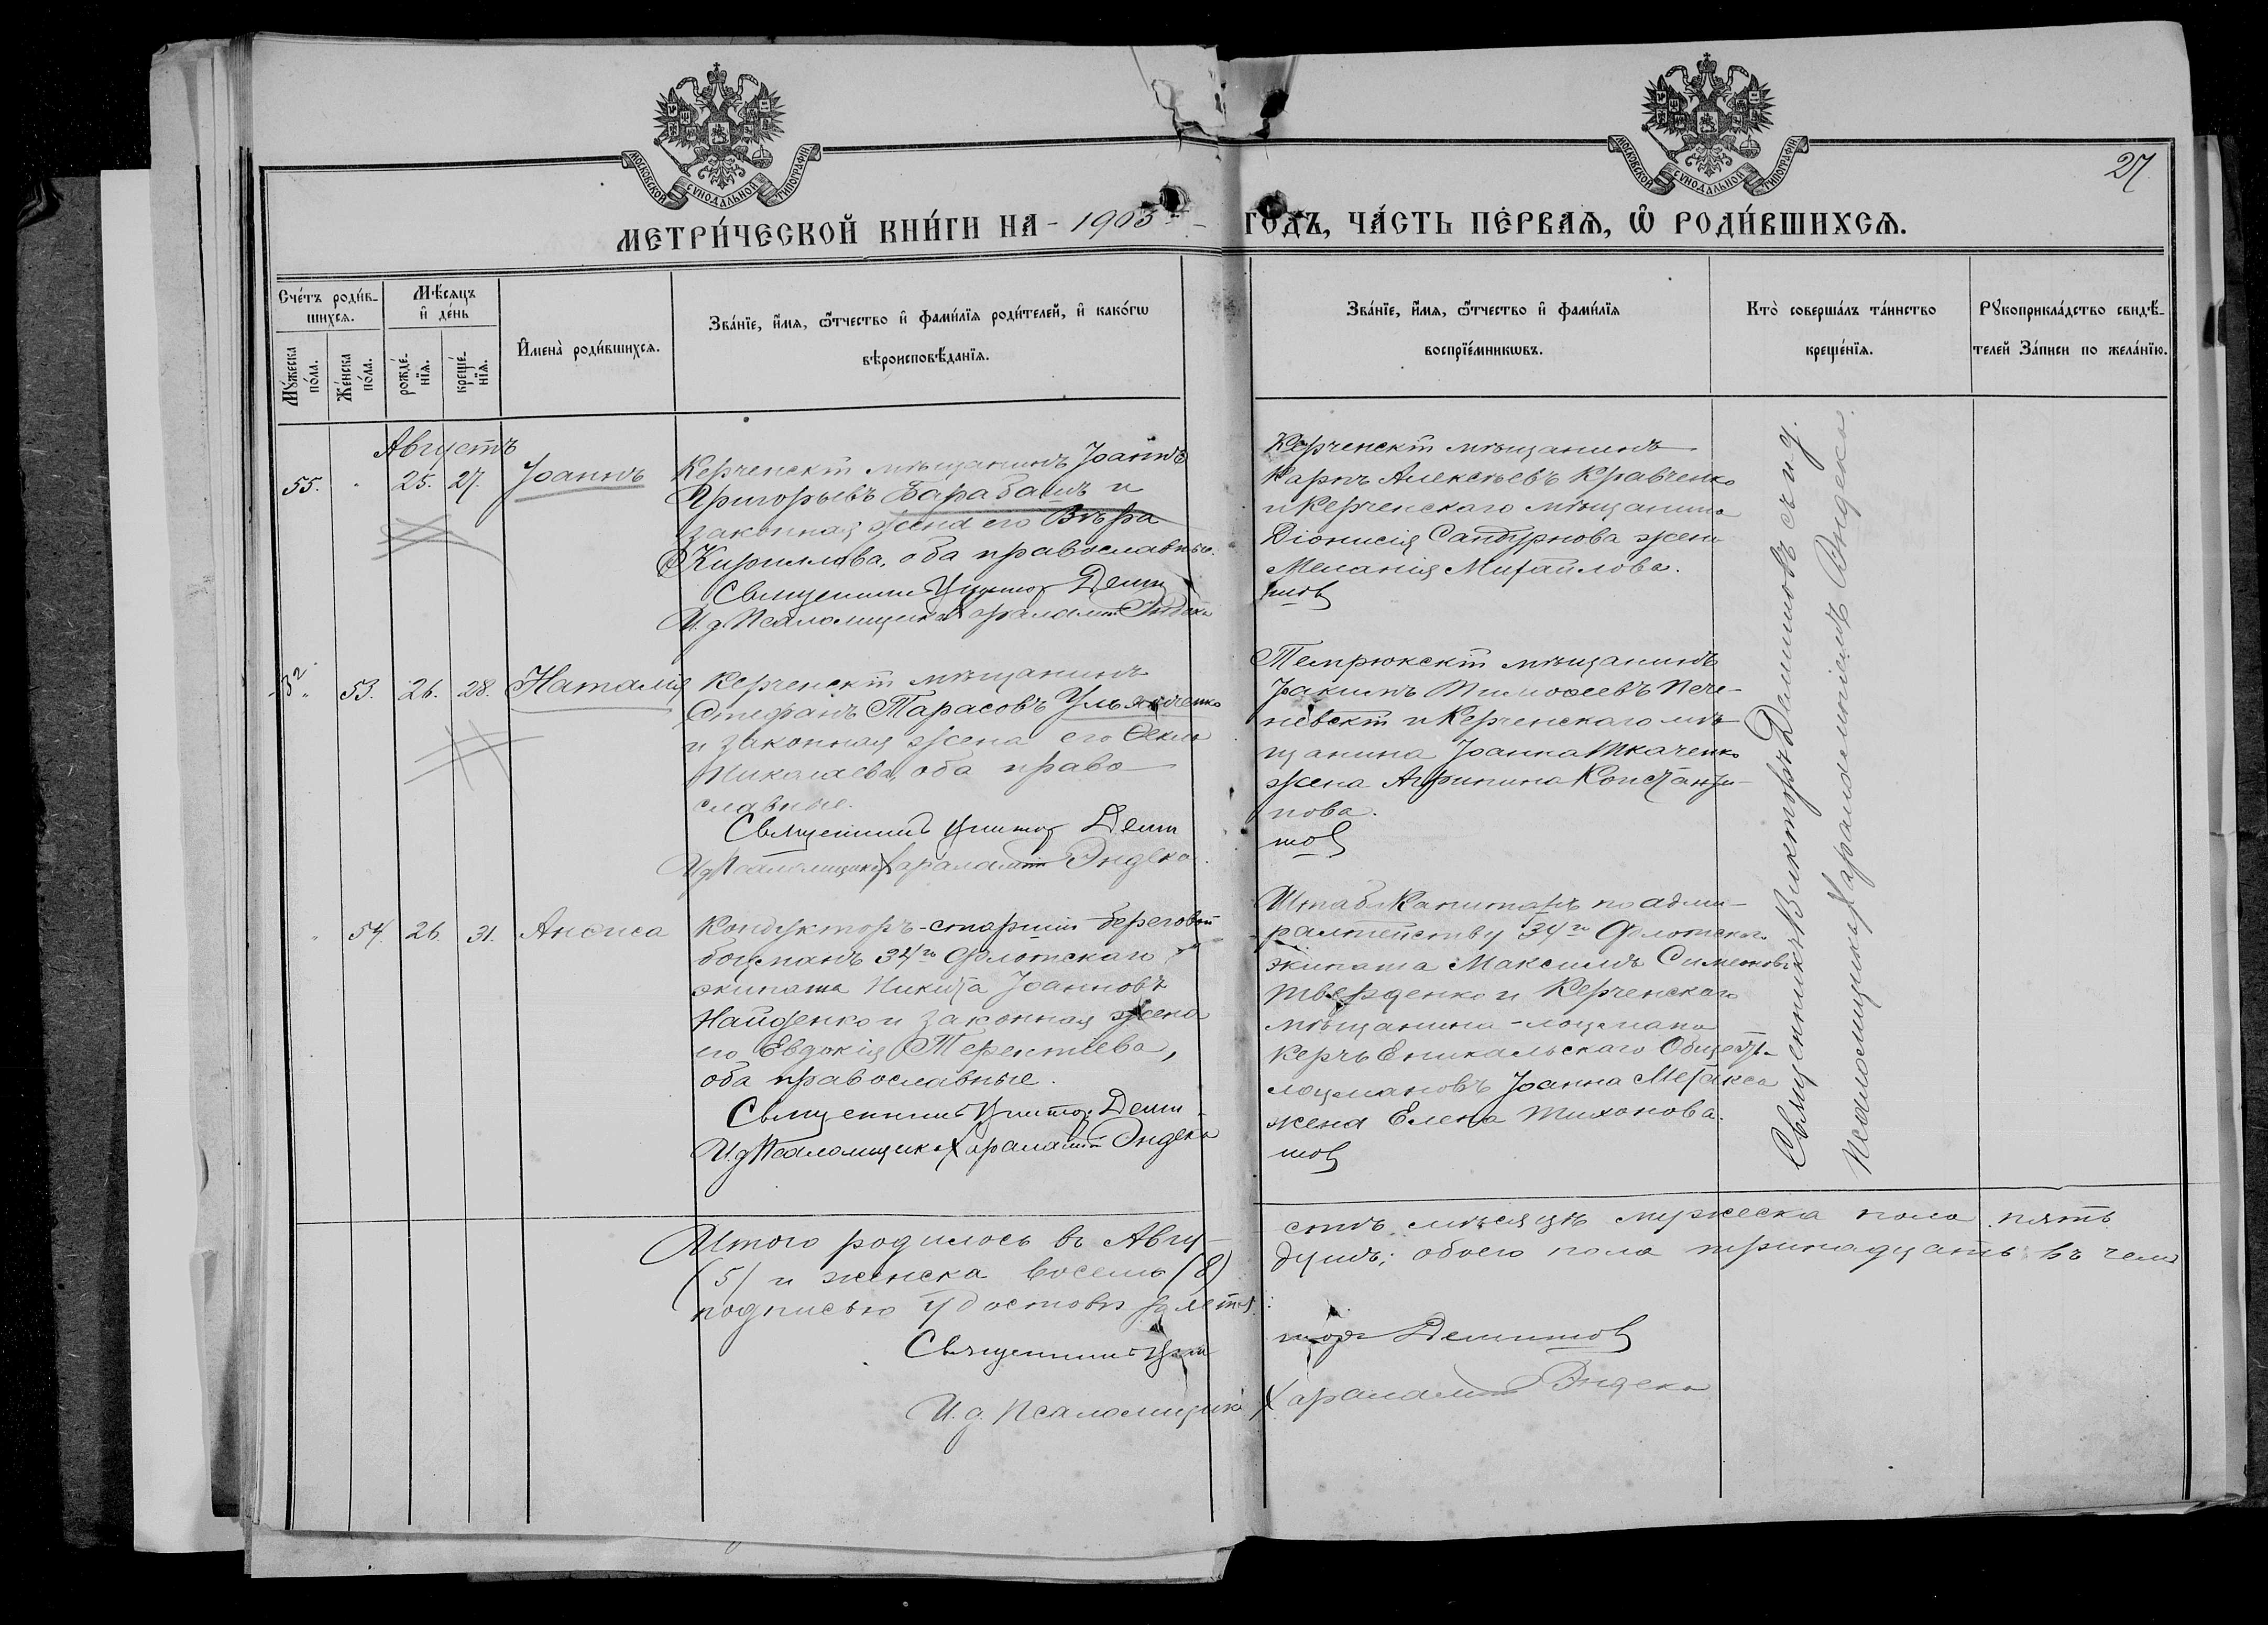 МОСКОВСКОЙ СУНОДАЛЬНОЙ ТИПОГРАФІИ
МОСКОВСКОЙ СУНОДАЛЬНОЙ ТИПОГРАФІИ
27.
МЕТРИ́ЧЕСКОЙ КНИ́ГИ НА - 1903 - ГО́ДЪ, ЧА́СТЬ ПЕ́РВАѦ, Ѡ҆ РОДИ́ВШИХСѦ.
Сче́тъ роди́в-
шихсѧ.
Мꙋ́жеска
по́ла.
Же́нска
по́ла.
Мѣ́сѧцъ
и҆ де́нь
рожде́-
нїѧ.
креще́-
нїѧ.
И҆мена̀ роди́вшихсѧ.
Зва́нїе, и҆́мѧ, ѻ҆́тчество и҆ фами́лїѧ роди́телей, и҆ како́гѡ
вѣроисповѣ́данїѧ.
Зва́нїе, и҆́мѧ, ѻ҆́тчество и҆ фами́лїѧ
воспрїе́мникѡвъ.
Кто̀ соверша́лъ та́инство
креще́нїѧ.
Рꙋкоприкла́дство свидѣ́-
телей За́писи по жела́нїю.
Августъ
55. " 25. 27. Іоаннъ
Керченскій мѣщанинъ Іоаннъ
Григорьевъ Барабашъ и
законная жена его Вѣра
Кириллова, оба православные.
Священникъ Викторъ Демин
И. д. Псаломщика Харалампій Яндека
Керченскій мѣщанинъ
Карпъ Алексѣевъ Кравченко
и Керченскаго мѣщанина
Діонисія жена
Меланія Михайлова.
53. 26. 28. Наталія
Керченскій мѣщанинъ
Стефанъ Тарасовъ
и законная жена его Ѳекла
Николаева, оба право
славные.
Священникъ Викторъ Демин
И. д. Псаломщика Харалампій Яндека.
Темрюкскій мѣщанинъ
Іакимъ Тимоѳеевъ Пече-
невскій и Керченскаго мѣ
щанина Іоанна Ткаченко
жена Агрипина Константи-
нова.
" 54. 26. 31. Анѳиса
Кондукторъ-старшій береговой
боцманъ 34го Флотскаго
экипажа Никита Іоанновъ
Найденко и законная жена
его Евдокія Терентіева,
оба православные.
Священникъ Викторъ Демин
И. д. Псаломщика Харалампій Яндека
Штабс-Капитанъ по адми-
ралтейству 34го Флотскаго
экипажа Максимъ Симеоновъ
Тверденко и Керченскаго
мѣщанина-лоцмана
Керчь Еникальскаго Общества
лоцмановъ Іоанна Метакса
жена Елена Тихонова.
Священникъ Викторъ съ и. д.
Псаломщика Харалампіемъ Яндека.
Итого родилось въ Авгу-
стѣ мѣсяцѣ мужеска пола пять
(5) и женска восемь (8)
душъ; обоего пола тринадцать въ чемъ
подписью удостовѣряемъ:
Священникъ Викторъ
И. д. Псаломщика Харалампій Яндека